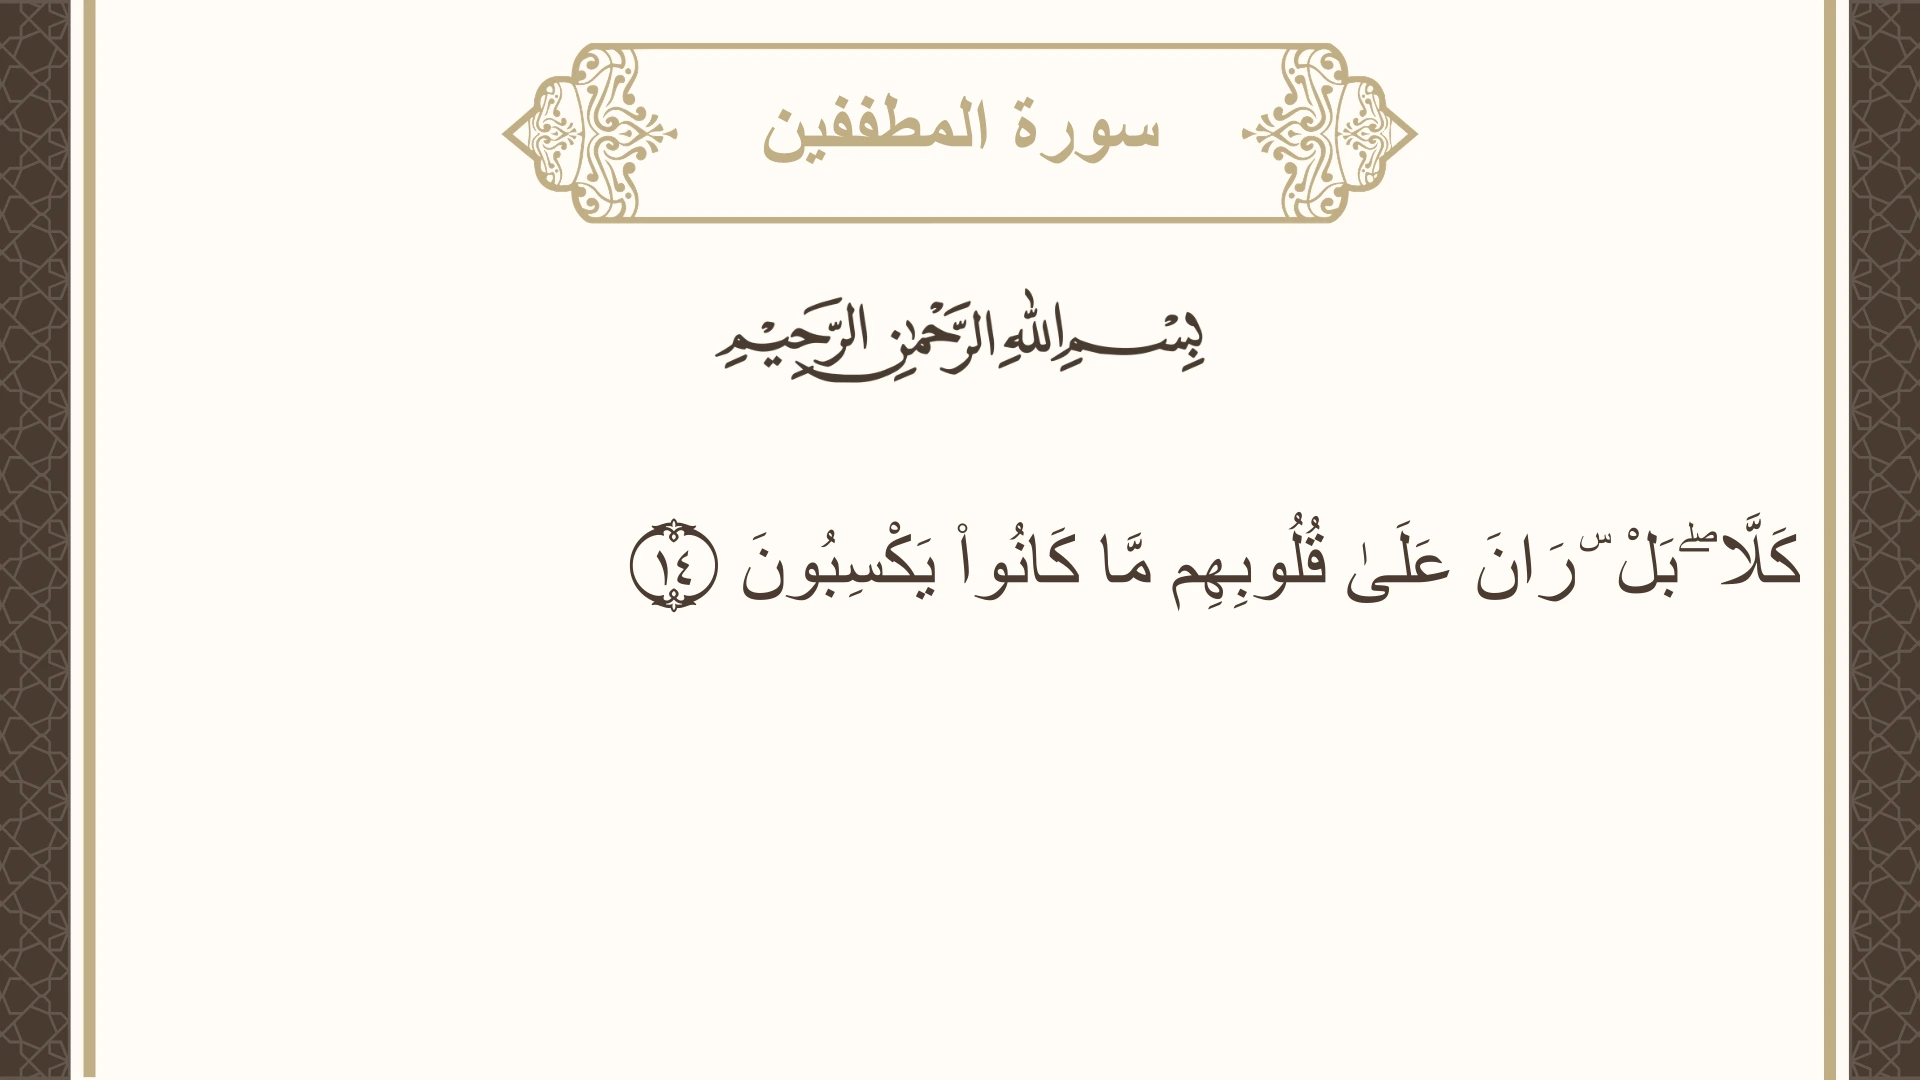 سورة المطففين
بِسْمِ اللهِ الرَّحْمٰنِ الرَّحِيْمِ
كَلَّا ۖ بَلْ ۜ رَانَ عَلَىٰ قُلُوبِهِم مَّا كَانُوا۟ يَكْسِبُونَ ١٤